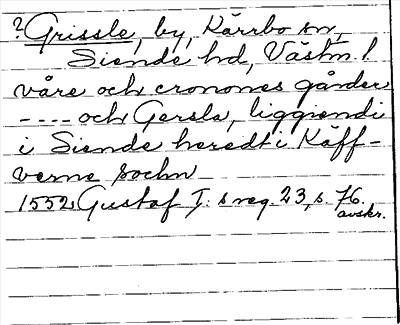 ? Grissle, by, Kärrbo sn,
Siende hd, Västm. l.
våre och cronones gårder
---- och Gersla, liggiendi
i Siende heredt i Käff-
verne sochn
1552 Gustaf I:s reg. 23, s. 76.
avskr.